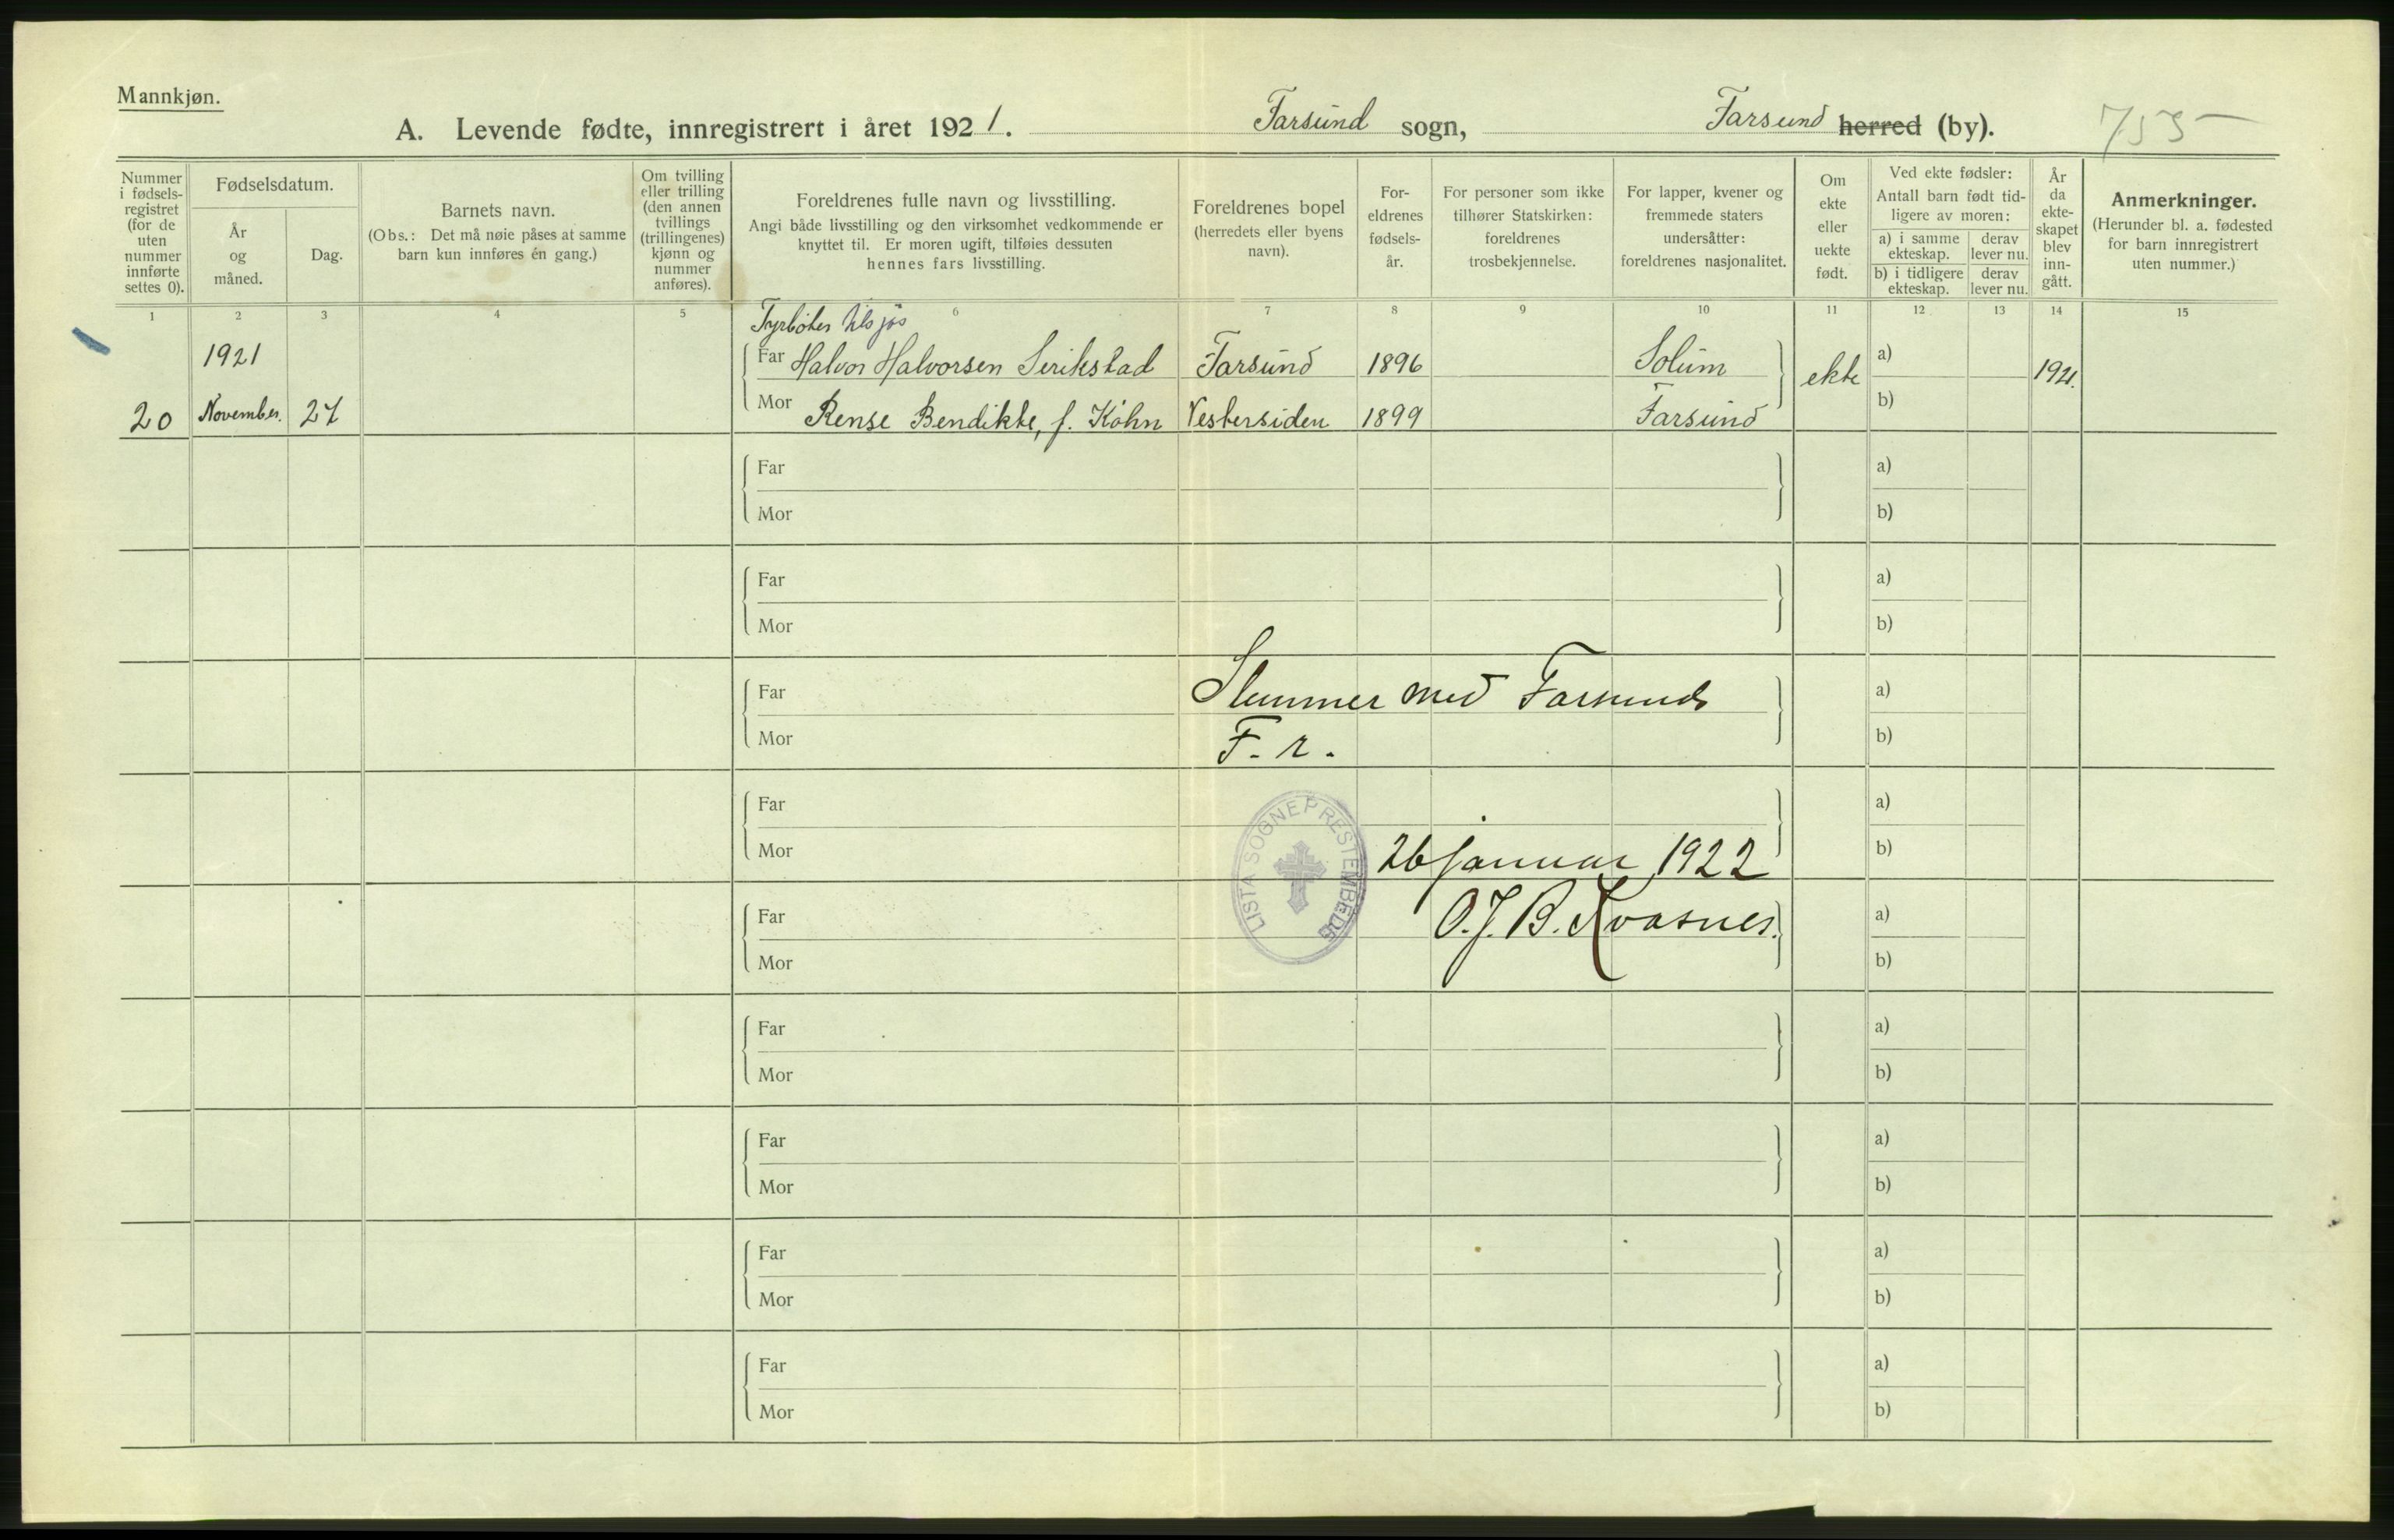 Mannkjøn.
A. Levende fødte, innregistrert i året 1921. Farsund sogn, Farsund herred (by).
Nummer i fødsels-registret (for de uten nummer innførte settes 0).
Fødselsdatum.
År og måned.
Dag.
Barnets navn.
(Obs.: Det må nøie påses at samme barn kun innføres én gang.)
Om tvilling eller trilling (den annen tvillings (trillingenes) kjønn og nummer anføres).
Foreldrenes fulle navn og livsstilling.
Angi både livsstilling og den virksomhet vedkommende er knyttet til. Er moren ugift, tilføies dessuten hennes fars livsstilling.
Foreldrenes bopel (herredets eller byens navn).
For-eldrenes fødsels-år.
For personer som ikke tilhører Statskirken: foreldrenes trosbekjennelse.
For lapper, kvener og fremmede staters undersåtter: foreldrenes nasjonalitet.
Om ekte eller uekte født.
Ved ekte fødsler:
Antall barn født tid-ligere av moren:
a) i samme ekteskap.
derav lever nu.
b) i tidligere ekteskap.
derav lever nu.
År da ekte-skapet blev inn-gått.
Anmerkninger.
(Herunder bl. a. fødested for barn innregistrert uten nummer.)
1 2 3 4 5 6 7 8 9 10 11 12 13 14 15
Fyrbøter
1921 Far Halvor Halvorsen Farsund 1896 Solum ekte a) 1921.
20 November. 27 Mor Rense Bendikte, f. Köhn Vestersiden 1899 Farsund b)
Far a)
Mor b)
Far a)
Mor b)
Far Stemmer med Farsunds a)
Mor F. r. b)
Far a)
LISTA SOGNEPRESTEMBEDE
Mor 26 januar 1922 b)
Far O. J. B. Kvasnes. a)
Mor b)
Far a)
Mor b)
Far a)
Mor b)
Far a)
Mor b)
Far a)
Mor b)